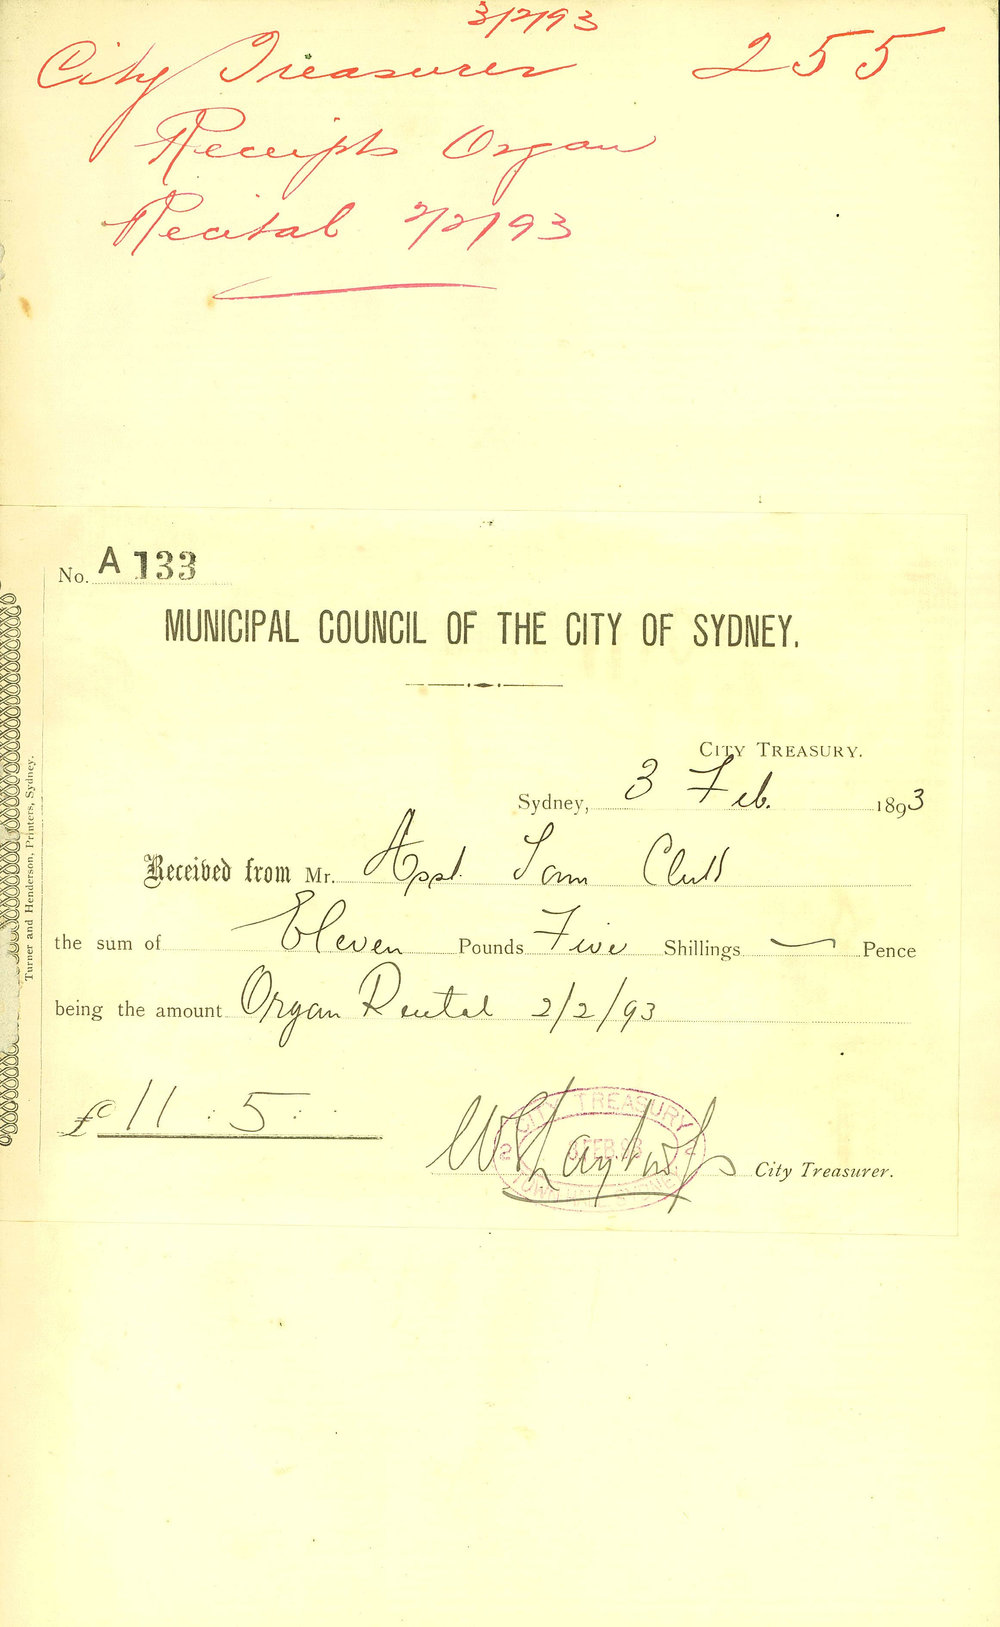 3/2/93
City Treasurer 255
Receipts Organ
Recital 2/2/93
No. A 133
MUNICIPAL COUNCIL OF THE CITY OF SYDNEY.
CITY TREASURY.
Sydney, 3 Feb. 1893
Received from Mr. Asst. Town Clerk
the sum of Eleven Pounds Five Shillings — Pence
being the amount Organ Recital 2/2/93
£ 11 : 5 :
City Treasurer.
CITY TREASURY
3 FEB. 93
TOWN HALL SYDNEY
Turner and Henderson, Printers, Sydney.